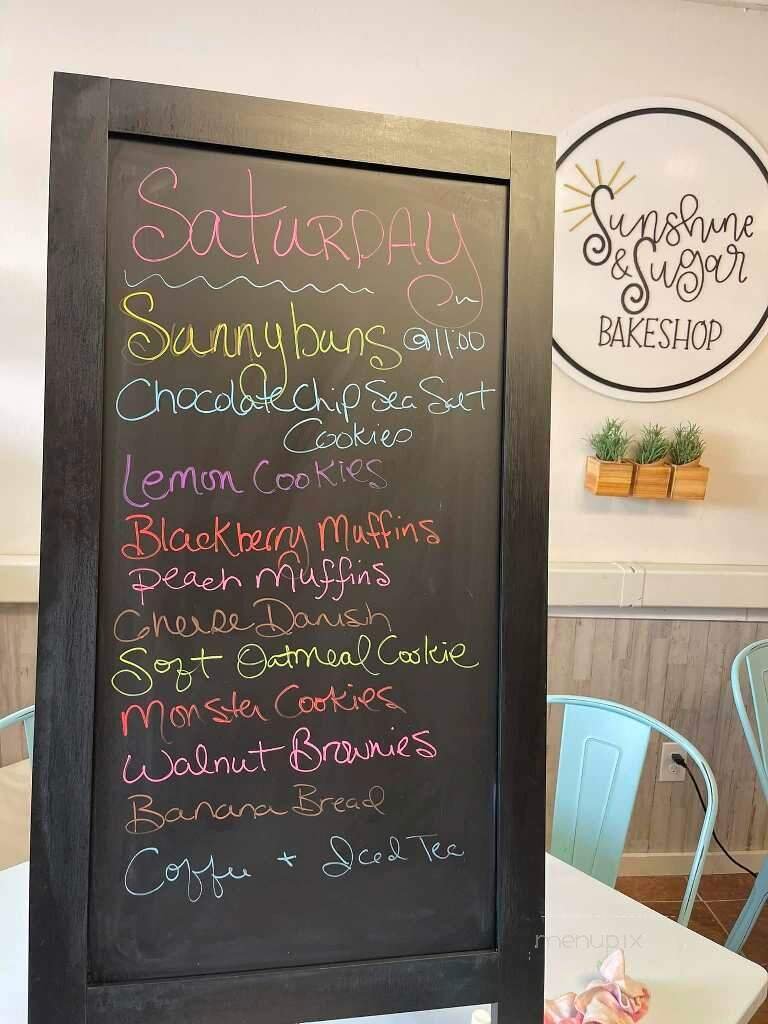 Saturday
Sunnybuns @11:00
Chocolate Chip Sea Salt
Cookies
Lemon Cookies
Blackberry Muffins
Peach Muffins
Cheese Danish
Soft Oatmeal Cookie
Monster Cookies
Walnut Brownies
Banana Bread
Coffee + Iced Tea
Sunshine
& Sugar
BAKESHOP
menupix